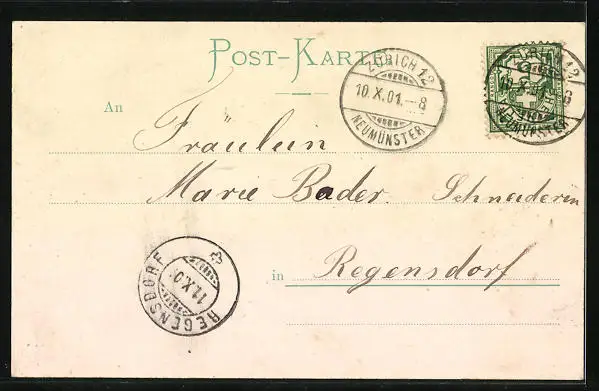 POST-KARTE
ZÜRICH 12
10.X.01.–8
NEUMÜNSTER
10.X.01.–8
NEUMÜNSTER
An
Fräulein
Marie Bader. Schneiderin
in Regensdorf
REGENSDORF
11.X.0